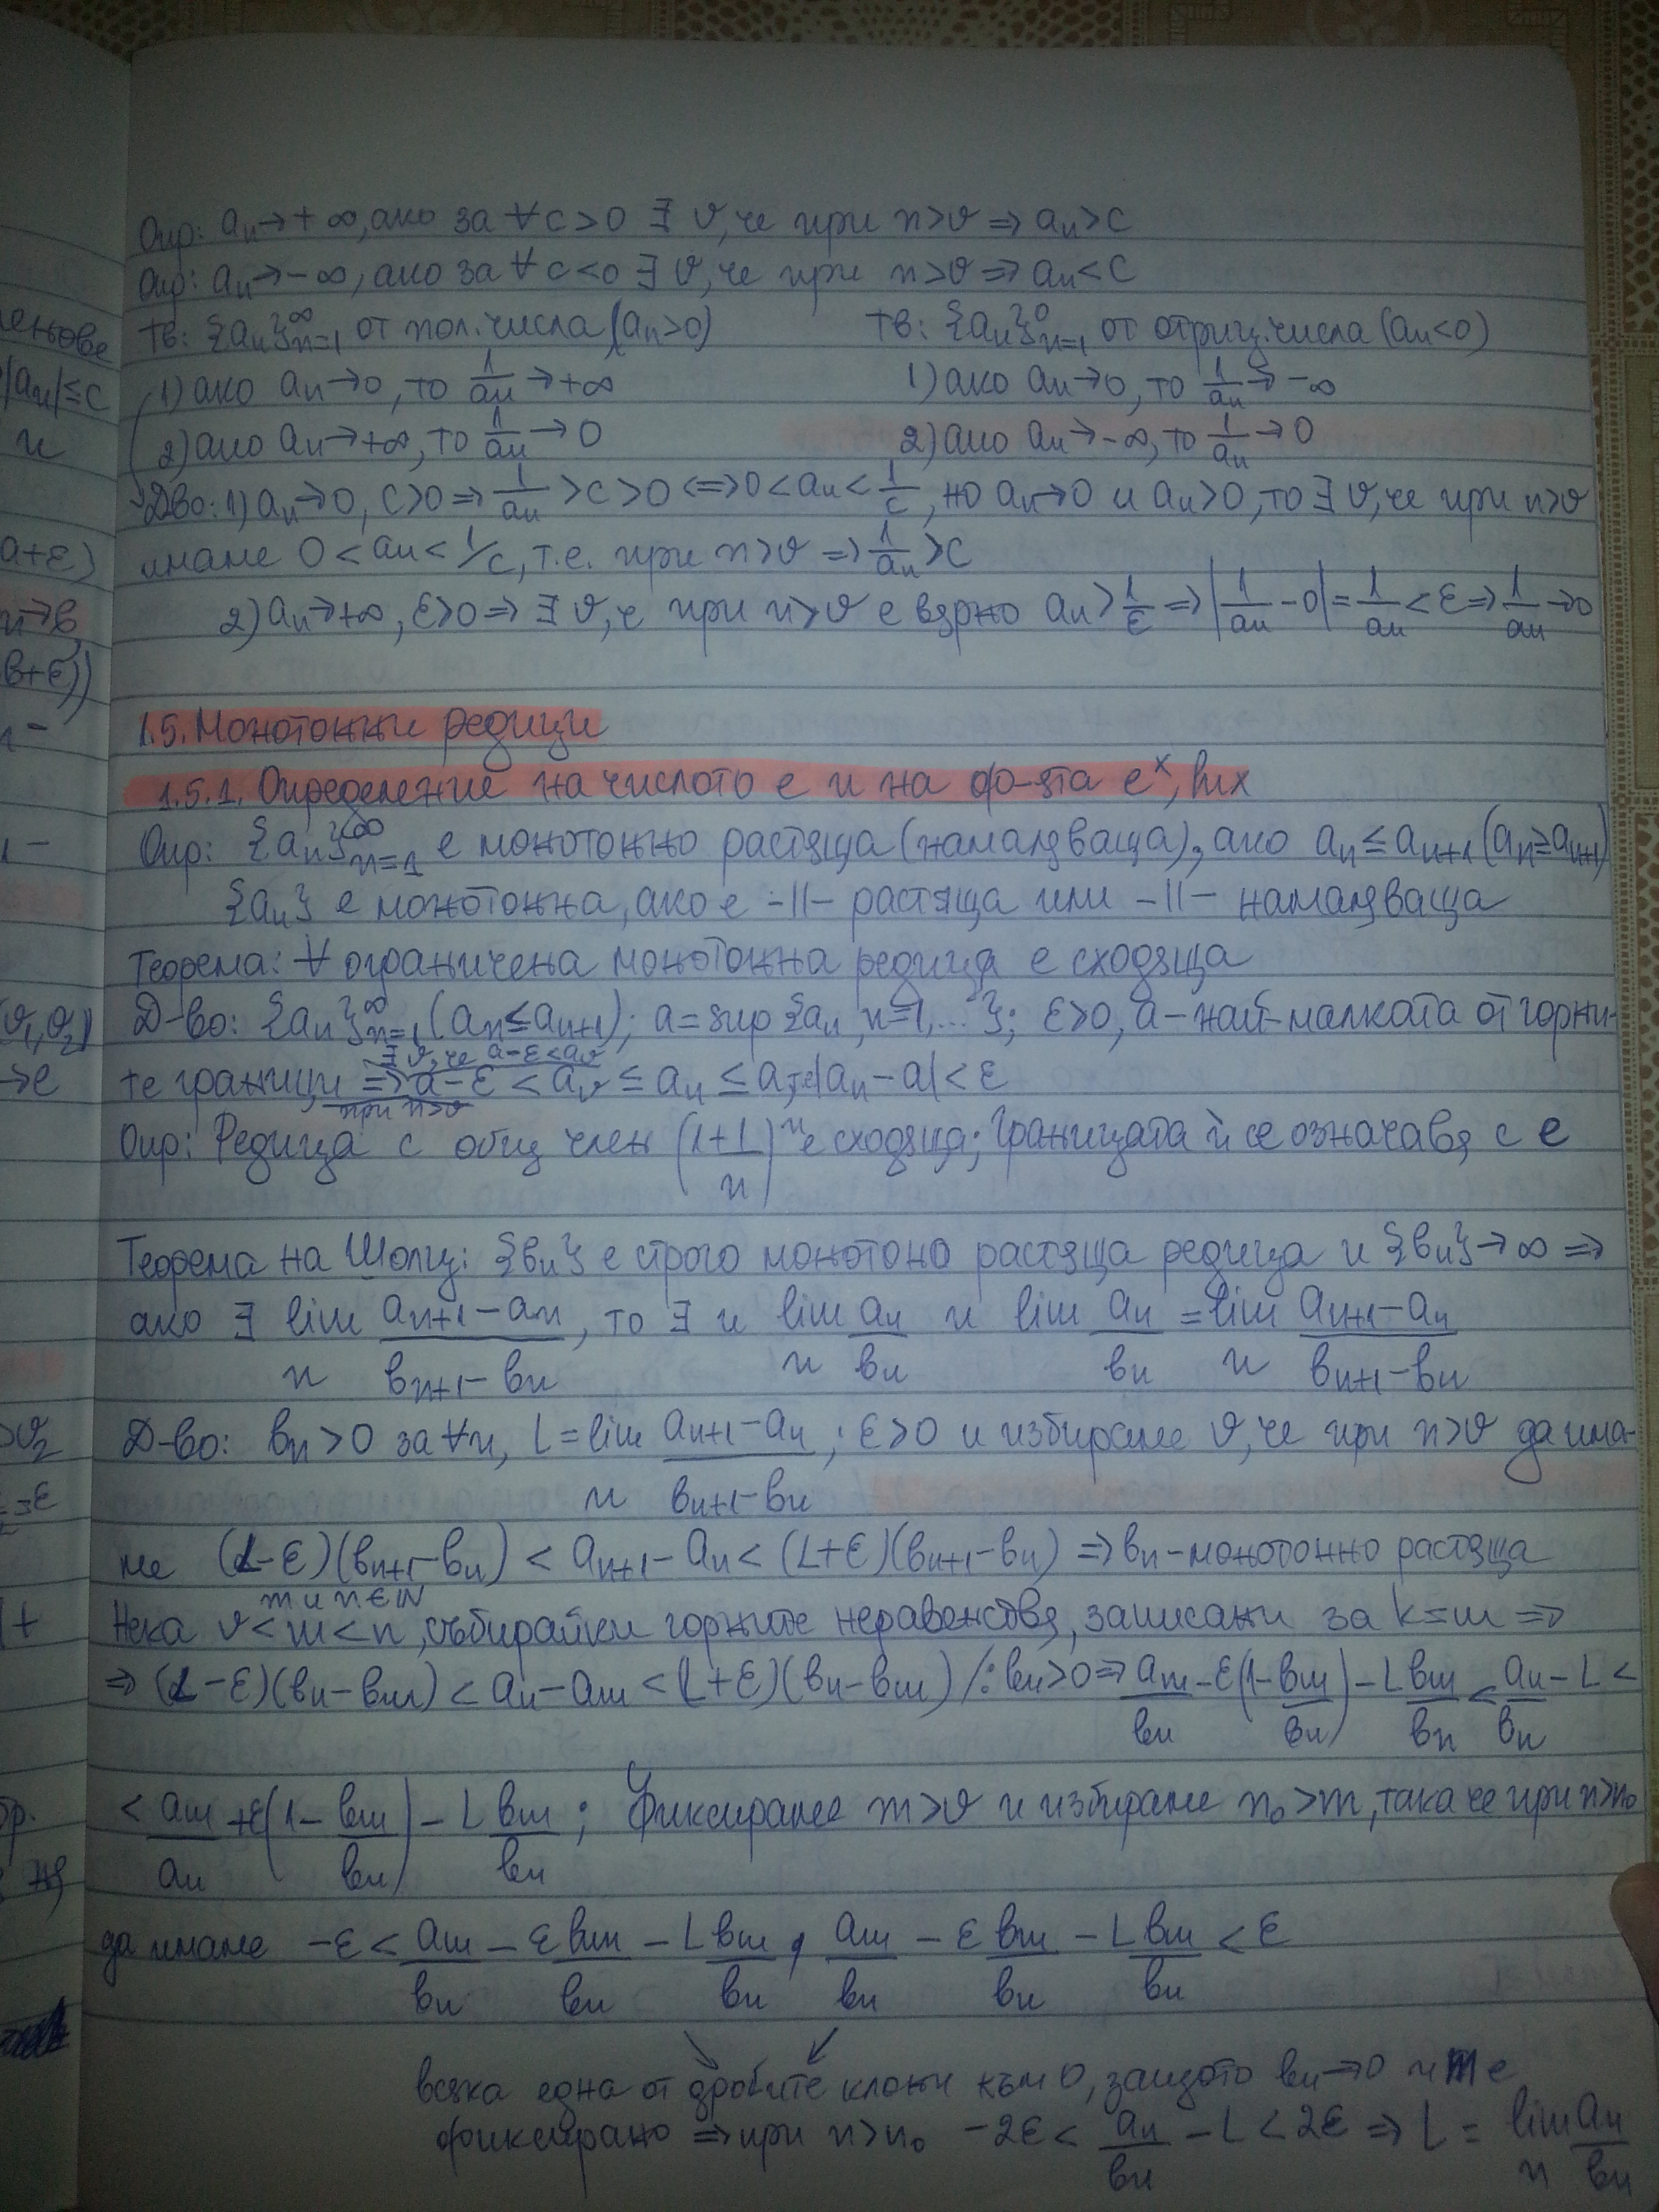 Опр: aₙ→+∞, ако за ∀c>0 ∃ν, че при n>ν ⇒ aₙ>c
Опр: aₙ→-∞, ако за ∀c<0 ∃ν, че при n>ν ⇒ aₙ<c
Тв: {aₙ}ₙ₌₁^∞ от пол. числа (aₙ>0) Тв: {aₙ}ₙ₌₁^0 от отриц. числа (aₙ<0)
1) ако aₙ→0, то 1/aₙ→+∞ 1) ако aₙ→0, то 1/aₙ→-∞
2) ако aₙ→+∞, то 1/aₙ→0 2) ако aₙ→-∞, то 1/aₙ→0
Д-во: 1) aₙ→0, c>0 ⇒ 1/aₙ >c>0 ⇔ 0<aₙ<1/c, но aₙ→0 и aₙ>0, то ∃ν, че при n>ν
имаме 0<aₙ<1/c, т.е. при n>ν ⇒ 1/aₙ >c
2) aₙ→+∞, ε>0 ⇒ ∃ν, че при n>ν е вярно aₙ>1/ε ⇒ |1/aₙ - 0| = 1/aₙ < ε ⇒ 1/aₙ→0
1.5. Монотонни редици
1.5.1. Определение на числото e и на ф-ята eˣ, lnx
Опр: {aₙ}ₙ₌₁^∞ е монотонно растяща (намаляваща), ако aₙ≤aₙ₊₁ (aₙ≥aₙ₊₁)
{aₙ} е монотонна, ако е -||- растяща или -||- намаляваща
Теорема: ∀ ограничена монотонна редица е сходяща
Д-во: {aₙ}ₙ₌₁^∞ (aₙ≤aₙ₊₁); a=sup{aₙ, n=1,...}; ε>0, a - най-малката от горни-
∃ν, че a-ε<aν
те граници ⇒ a-ε < aν ≤ aₙ ≤ a, т.е. |aₙ-a|<ε
при n>ν
Опр: Редица с общ член (1+1/n)ⁿ е сходяща; границата ѝ се означава с e
Теорема на Шолц: {bₙ} е строго монотоно растяща редица и {bₙ}→∞ ⇒
ако ∃ lim_n (aₙ₊₁-aₙ)/(bₙ₊₁-bₙ), то ∃ и lim_n aₙ/bₙ и lim aₙ/bₙ = lim_n (aₙ₊₁-aₙ)/(bₙ₊₁-bₙ)
Д-во: bₙ>0 за ∀n, L=lim_n (aₙ₊₁-aₙ)/(bₙ₊₁-bₙ); ε>0 и избираме ν, че при n>ν да има-
ме (L-ε)(bₙ₊₁-bₙ) < aₙ₊₁-aₙ < (L+ε)(bₙ₊₁-bₙ) ⇒ bₙ - монотонно растяща
m и n∈ℕ
Нека ν<m<n, събирайки горните неравенства, записани за k=m ⇒
⇒ (L-ε)(bₙ-bₘ) < aₙ-aₘ < (L+ε)(bₙ-bₘ) /:bₙ>0 ⇒ aₘ/bₙ - ε(1-bₘ/bₙ) - L bₘ/bₙ < aₙ/bₙ - L <
< aₘ/aₙ + ε(1-bₘ/bₙ) - L bₘ/bₙ; Фиксираме m>ν и избираме n₀>m, така че при n>n₀
да имаме -ε < aₘ/bₙ - ε bₘ/bₙ - L bₘ/bₙ, aₘ/bₙ - ε bₘ/bₙ - L bₘ/bₙ < ε
всяка една от дробите клони към 0, защото bₙ→0 и m е
фиксирано ⇒ при n>n₀ -2ε < aₙ/bₙ - L < 2ε ⇒ L = lim_n aₙ/bₙ